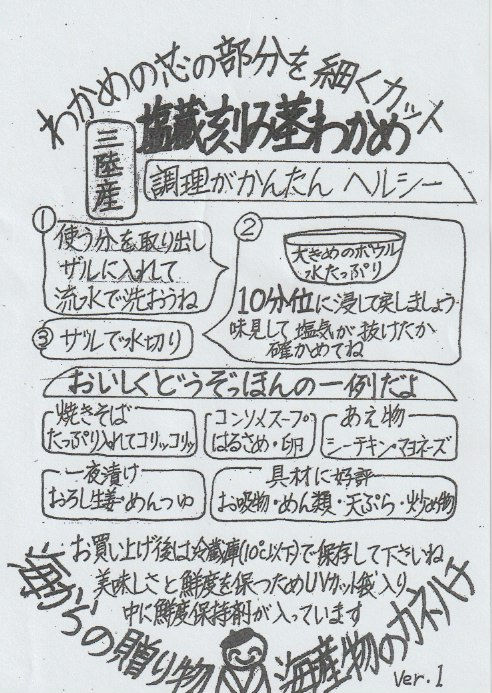 わかめの芯の部分を細くカット
塩蔵刻み茎わかめ
三陸産
調理がかんたん ヘルシー
①
使う分を取り出し
ザルに入れて
流水で洗おうね
②
大きめのボウル
水たっぷり
10分位に浸して戻しましょう
味見して塩気が抜けたか
確かめてね
③ ザルで水切り
おいしくどうぞっほんの一例だよ
焼きそば
たっぷり入れてコリッコリッ
コンソメスープ
はるさめ・卵
あえ物
シーチキン・マヨネーズ
一夜漬け
おろし生姜・めんつゆ
具材に好評
お吸物・めん類・天ぷら・炒め物
お買い上げ後は冷蔵庫(10℃以下)で保存して下さいね
美味しさと鮮度を保つためUVカット袋入り
中に鮮度保持剤が入っています
海からの贈り物
海産物のカネハチ
Ver.1